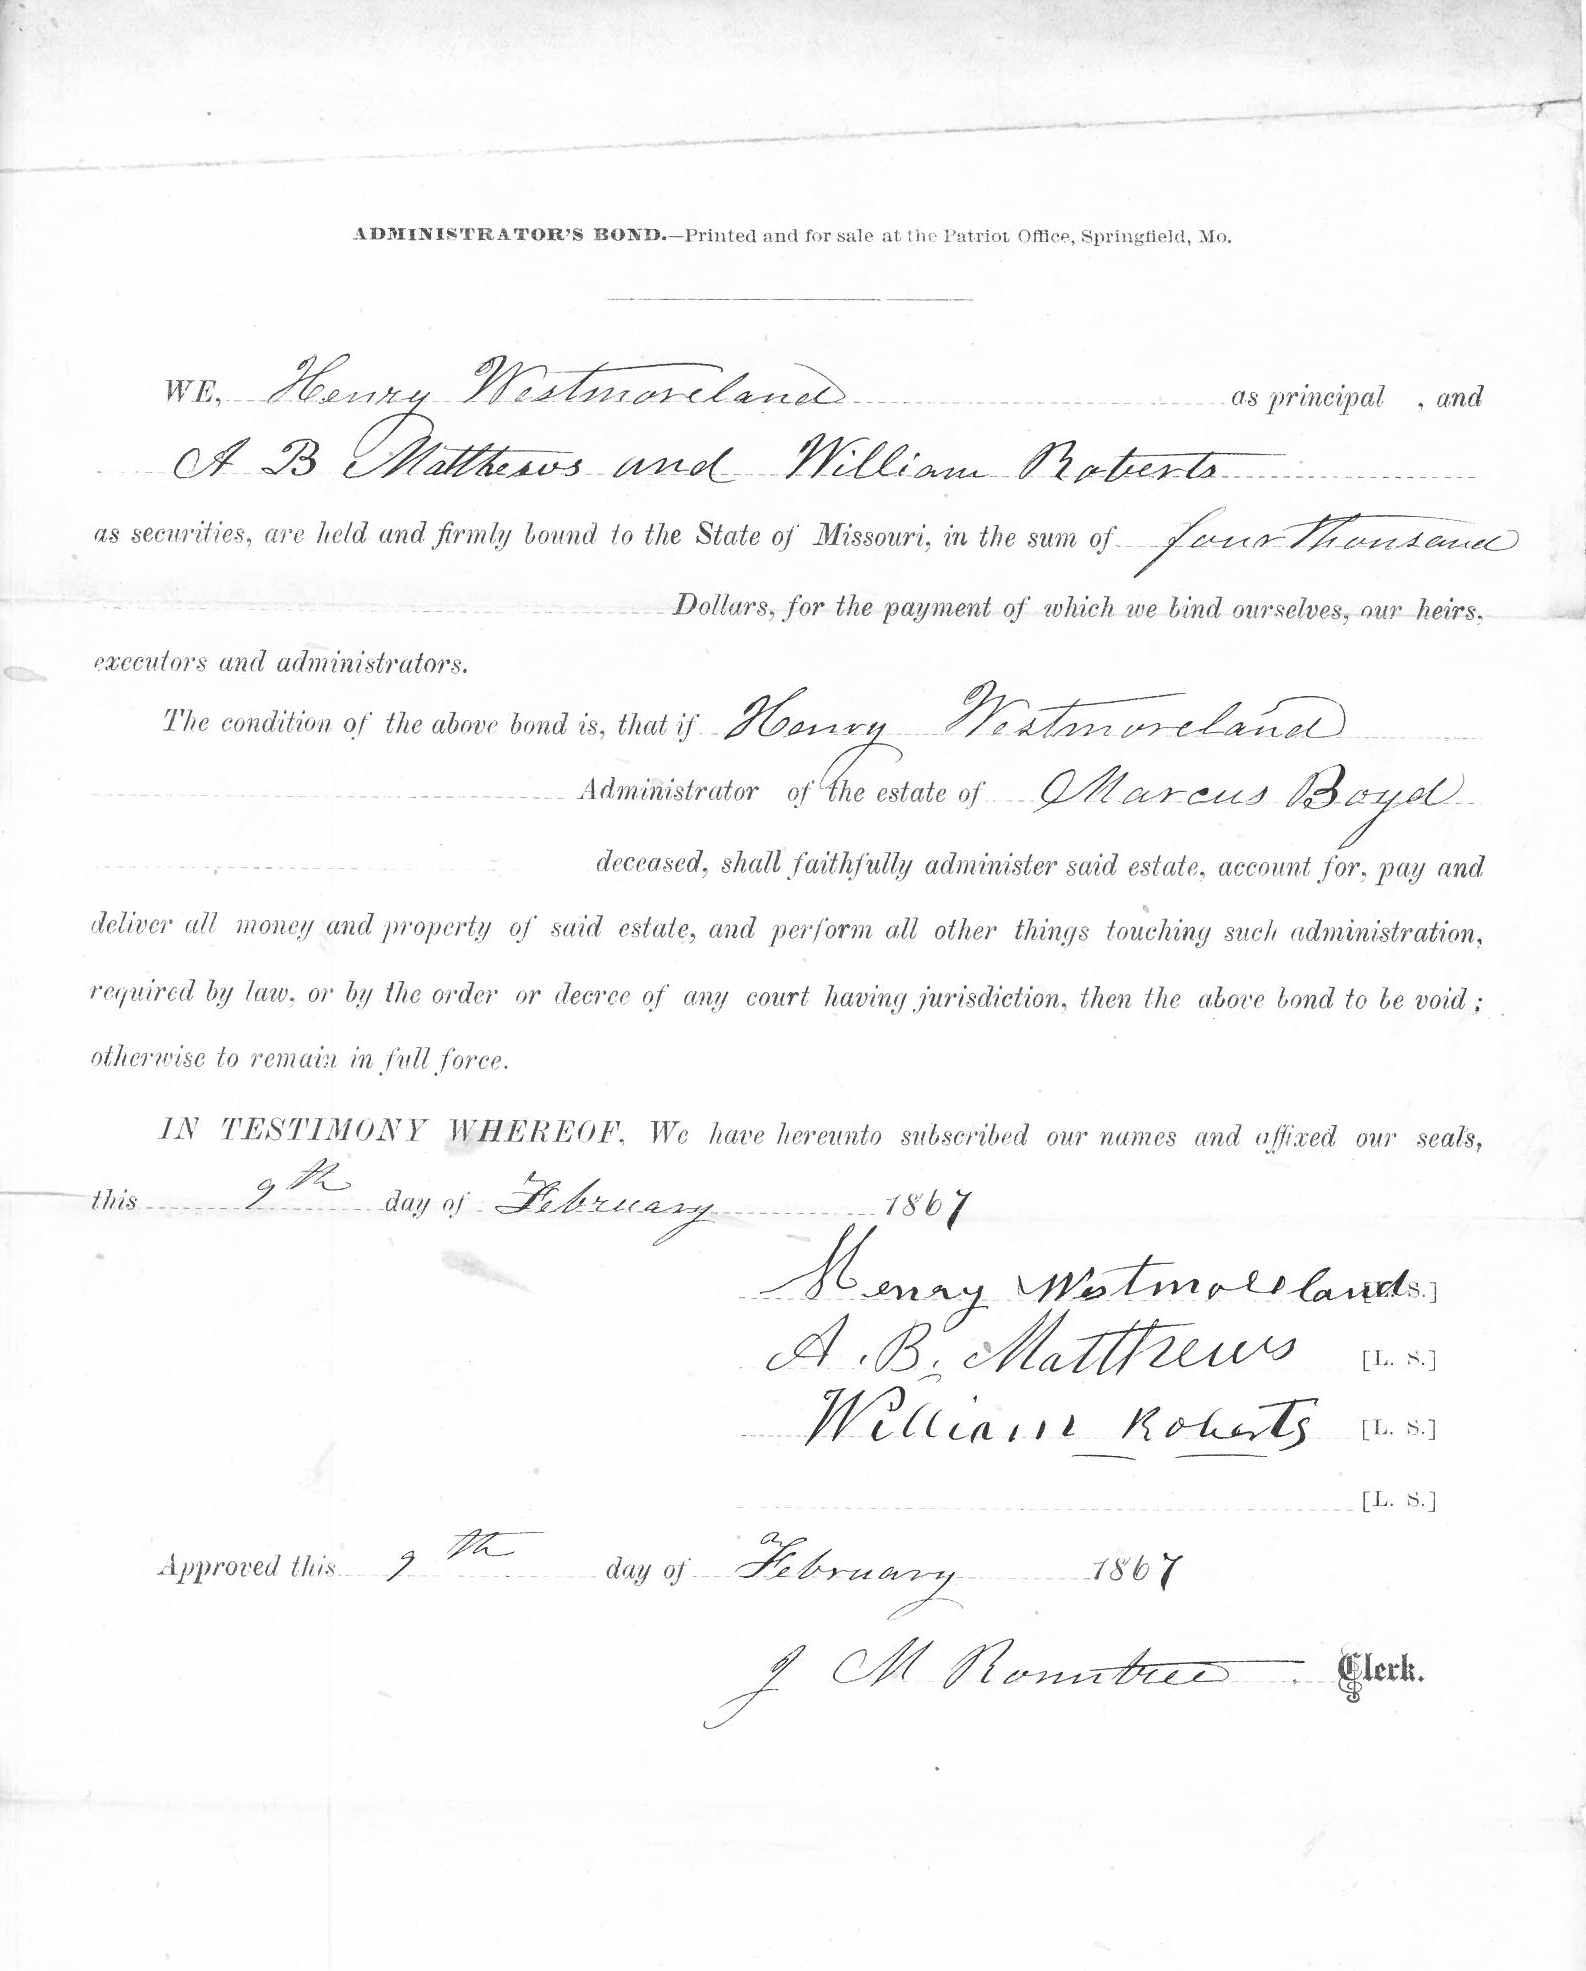 ADMINISTRATOR'S BOND.—Printed and for sale at the Patriot Office, Springfield, Mo.
WE, Henry Westmoreland as principal , and
A B Matthews and William Roberts
as securities, are held and firmly bound to the State of Missouri, in the sum of four Thousand
Dollars, for the payment of which we bind ourselves, our heirs,
executors and administrators.
The condition of the above bond is, that if Henry Westmoreland
Administrator of the estate of Marcus Boyd
deceased, shall faithfully administer said estate, account for, pay and
deliver all money and property of said estate, and perform all other things touching such administration,
required by law, or by the order or decree of any court having jurisdiction, then the above bond to be void ;
otherwise to remain in full force.
IN TESTIMONY WHEREOF, We have hereunto subscribed our names and affixed our seals,
this 9th day of February 1867
Henry Westmoreland [L. S.]
A. B. Matthews [L. S.]
William Roberts [L. S.]
[L. S.]
Approved this 9th day of February 1867
J M Rountree Clerk.